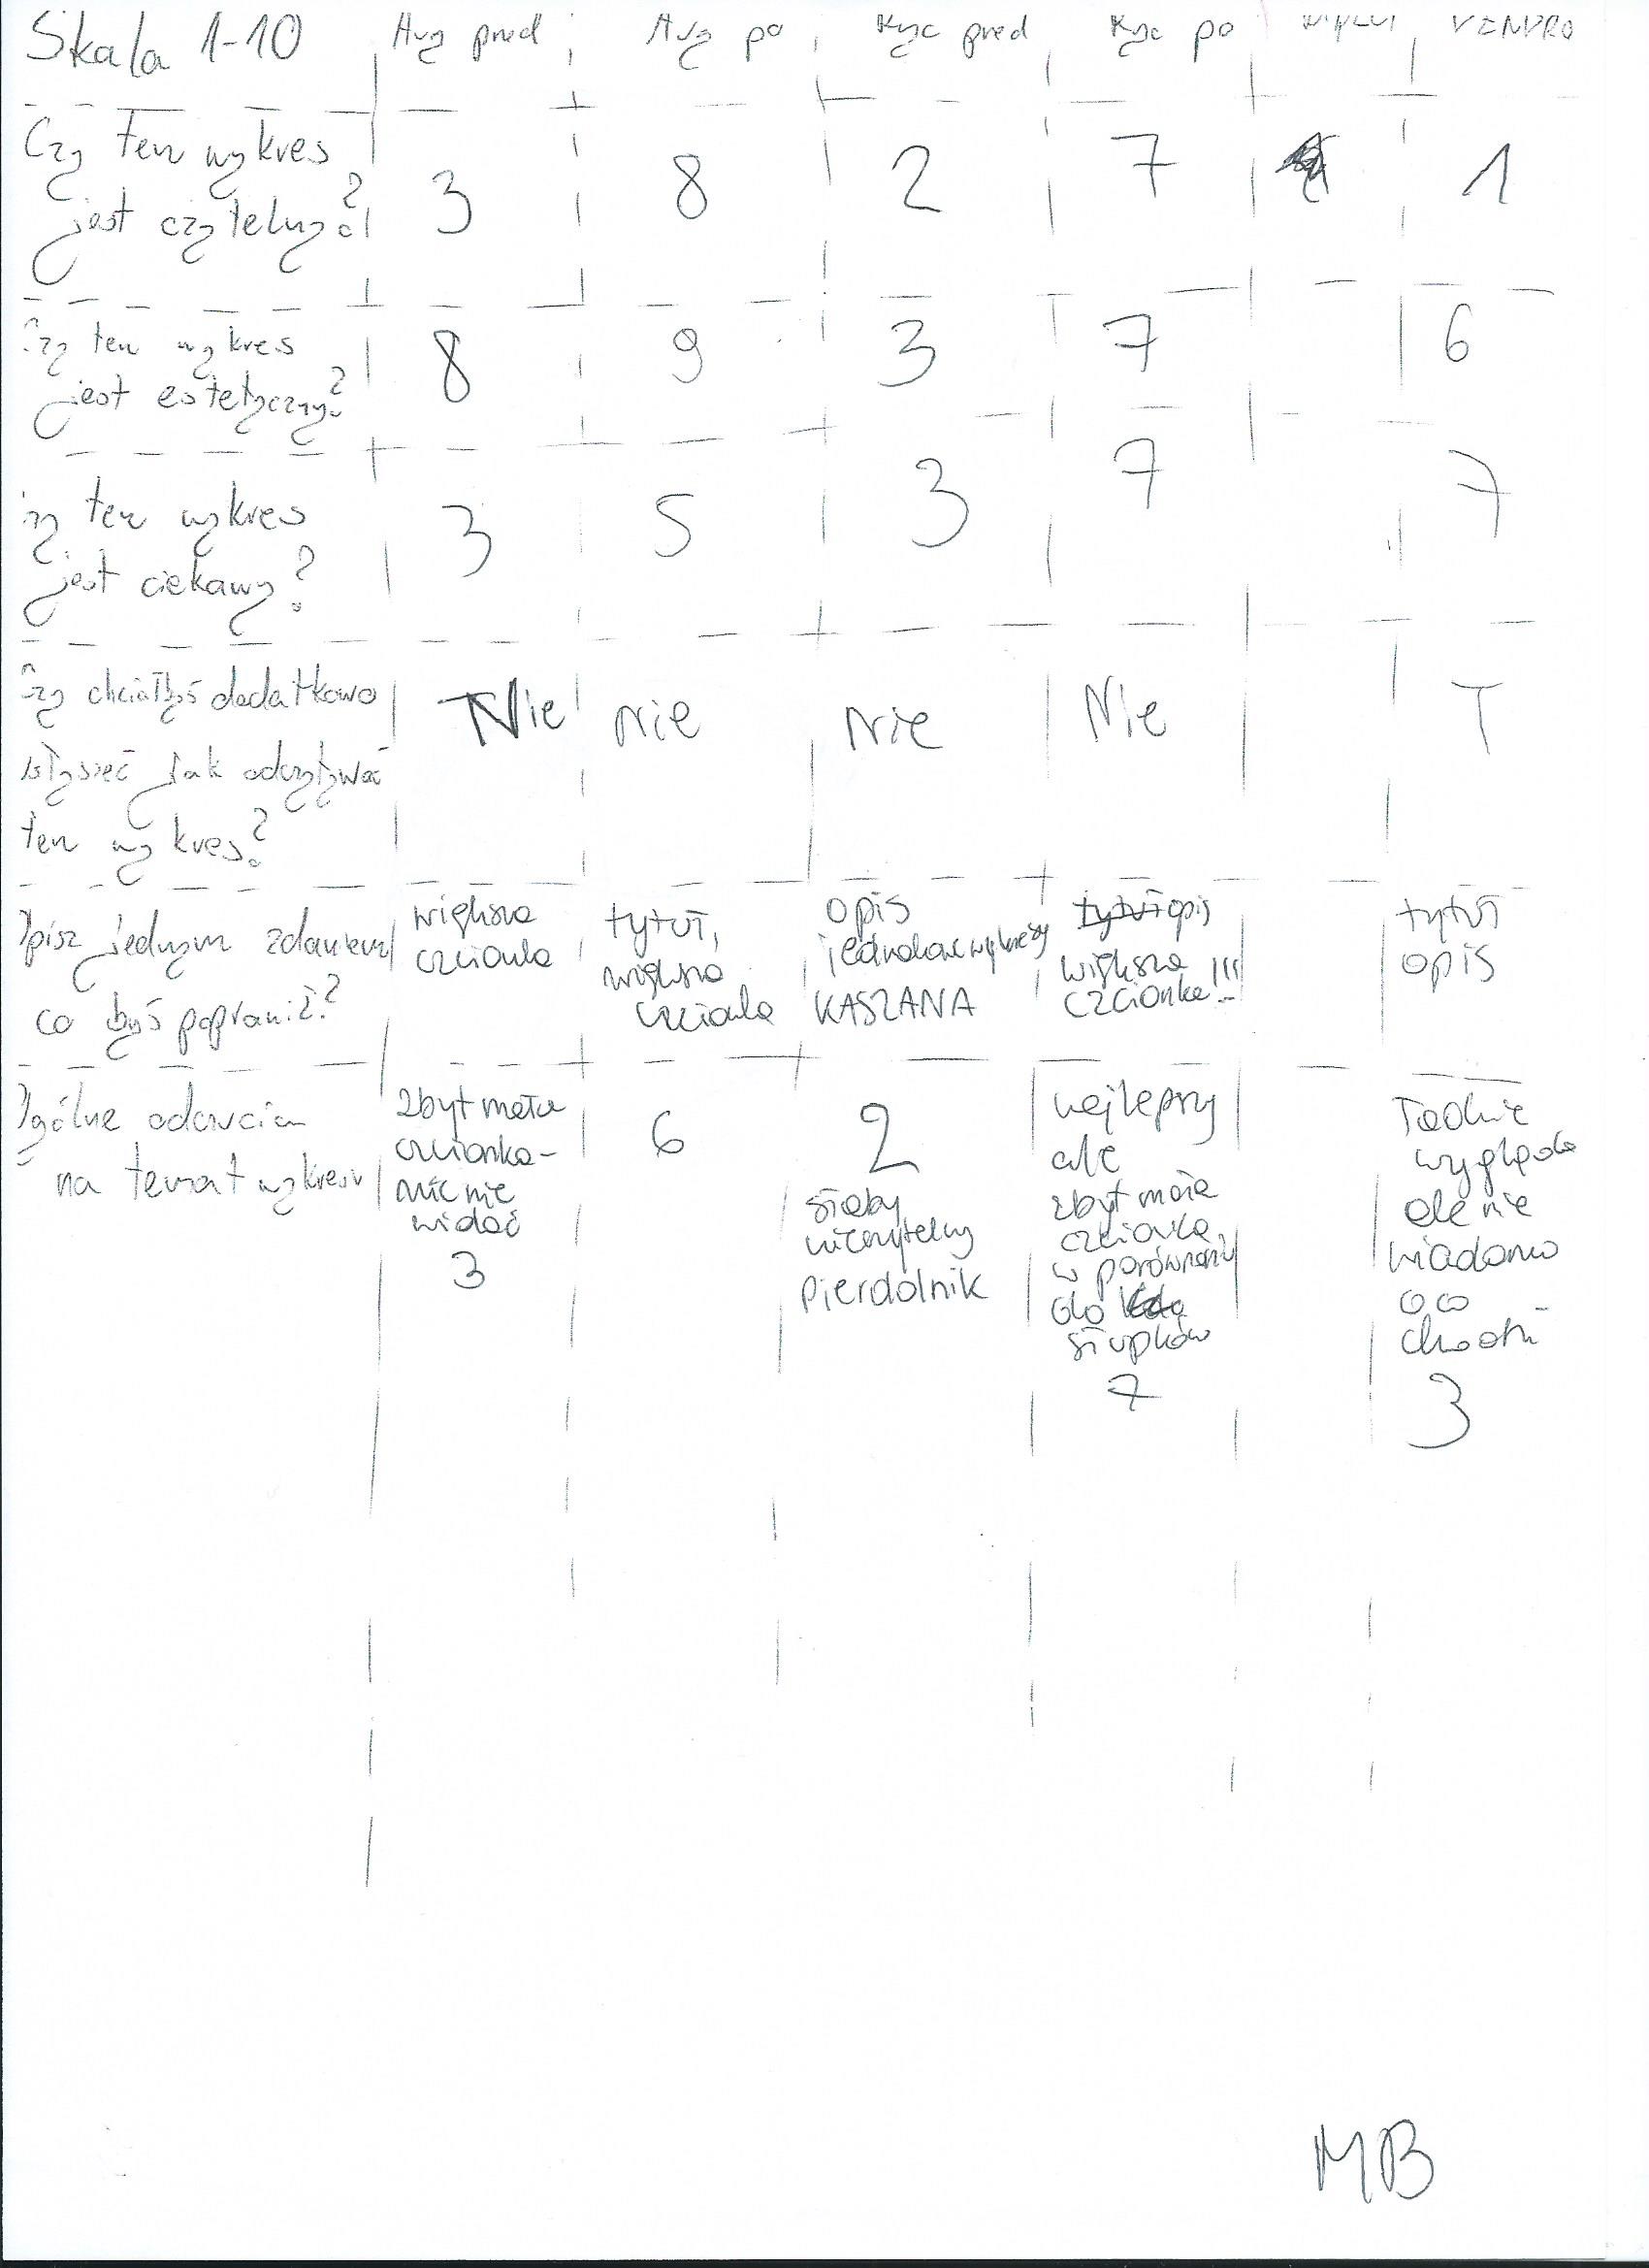 Skala 1-10 Avg pred Avg po Kyc pred Kyc po
Czy ten wykres
jest czytelny? 3 8 2 7 1
Czy ten wykres
jest estetyczny? 8 9 3 7 6
czy ten wykres
jest ciekawy? 3 5 3 7 7
Czy chciałbyś dodatkowo
Nie nie nie Nie T
jak odczytywać
ten wykres?
Opisz jednym zdaniem
co byś poprawił?
większa
czcionka
tytuł,
większa
czcionka
opis
KASZANA
opis
większa
czcionka!!!
tytuł
opis
Ogólne odczucia
na temat wykresu
zbyt mała
czcionka-
nic nie
widać
3
6
2
słaby
nieczytelny
pierdolnik
najlepszy
ale
zbyt mała
czcionka
w porównaniu
do
słupków
7
ładnie
wygląda
ale nie
wiadomo
o co
chodzi
3
MB